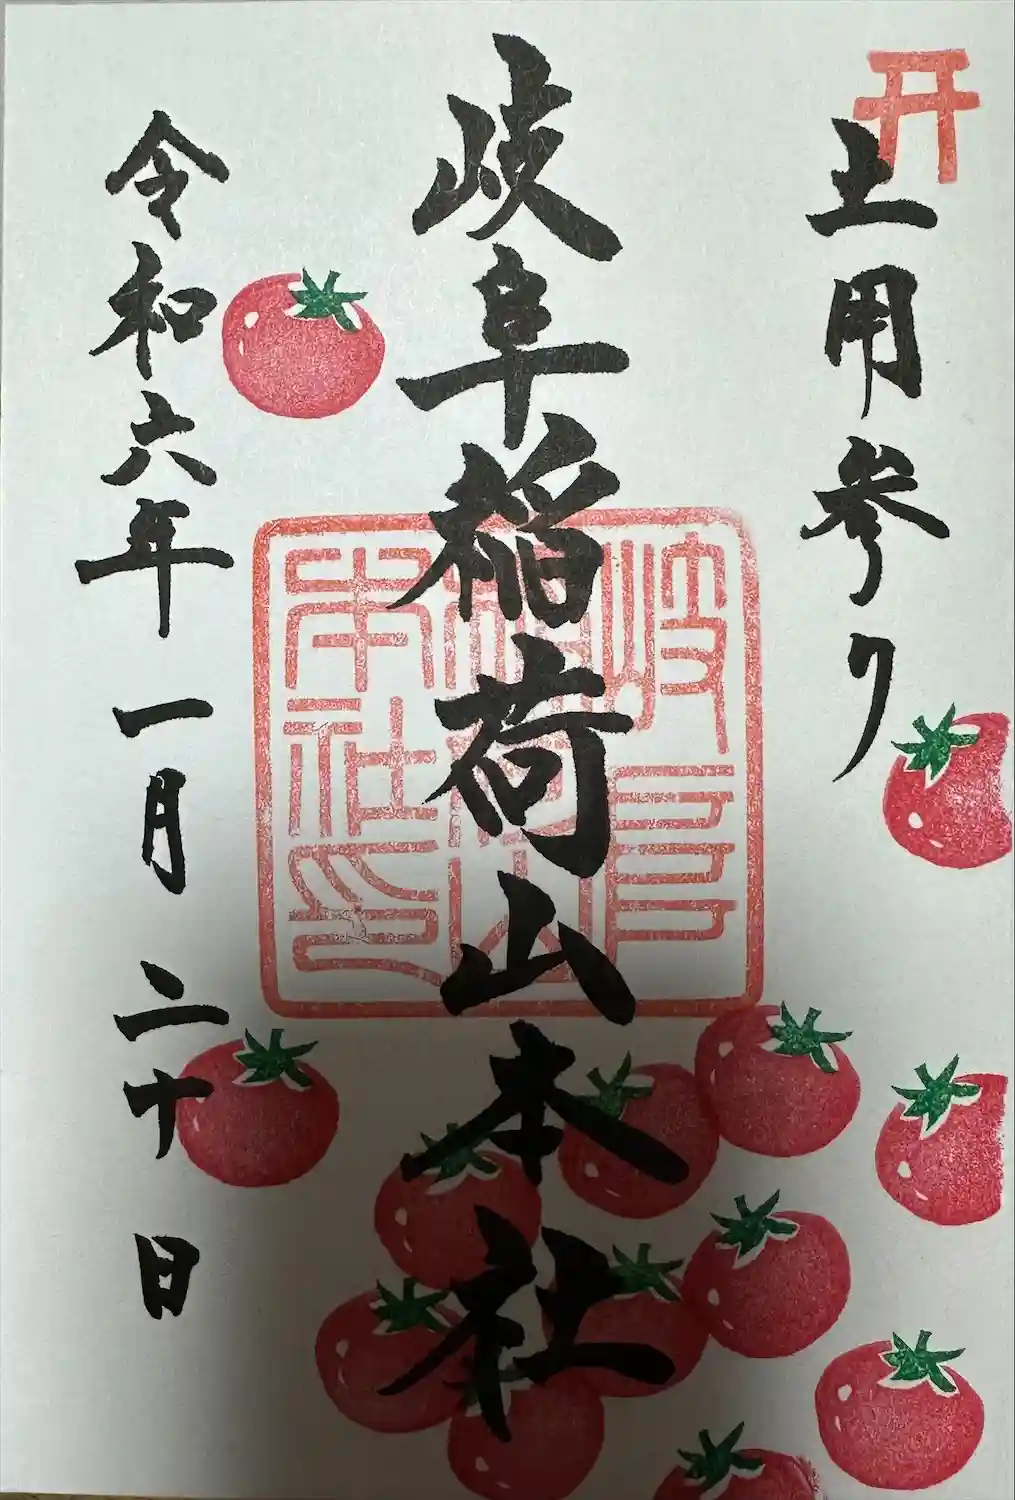 土用参り
岐阜稲荷山本社
岐阜稲荷山本社印
令和六年一月二十日